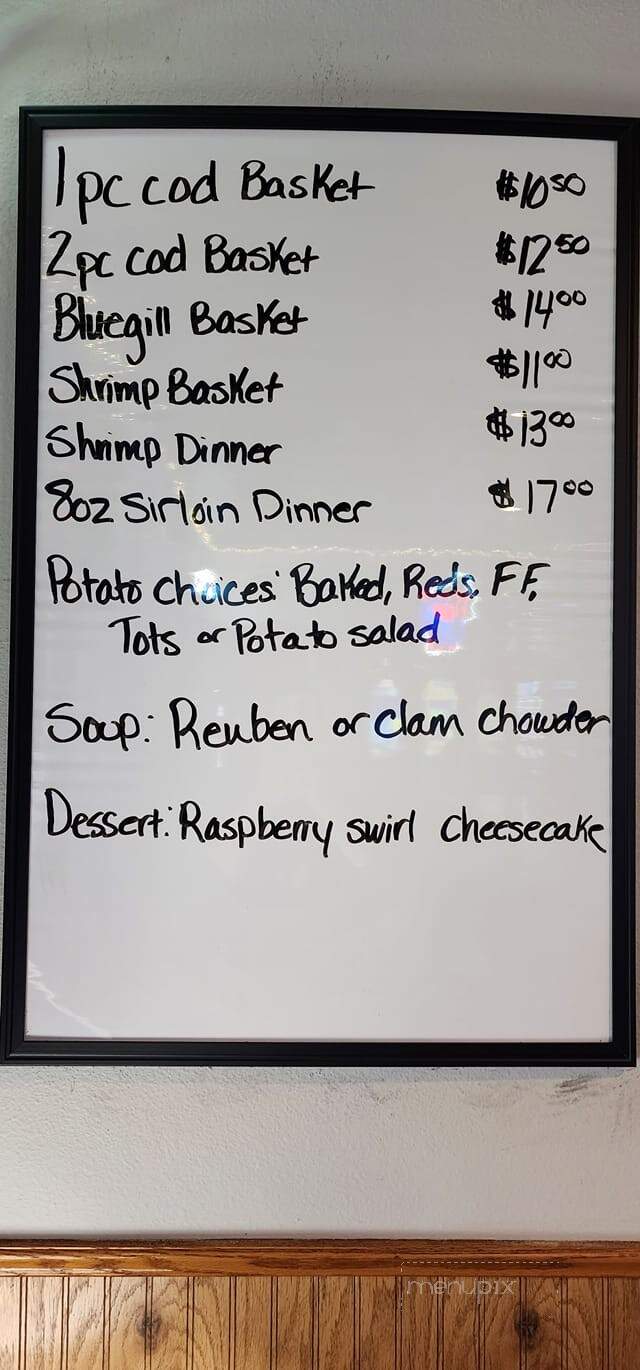 1pc cod Basket $10.50
2pc cod Basket $12.50
Bluegill Basket $14.00
Shrimp Basket $11.00
Shrimp Dinner $13.00
8oz Sirloin Dinner $17.00
Potato choices: Baked, Reds, FF,
Tots or Potato salad
Soup: Reuben or clam chowder
Dessert: Raspberry swirl cheesecake
menupix